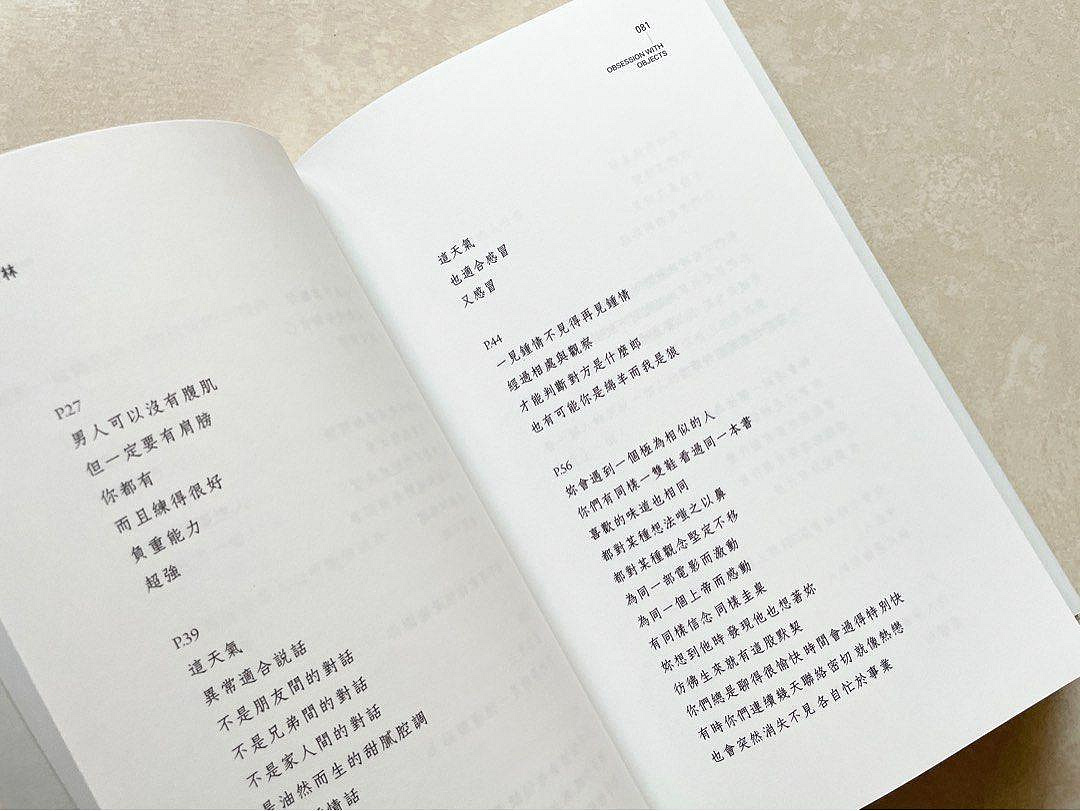 林
P.27
男人可以沒有腹肌
但一定要有肩膀
你都有
而且練得很好
負重能力
超強
P.39
這天氣
異常適合說話
不是朋友間的對話
不是兄弟間的對話
不是家人間的對話
是油然而生的甜膩腔調
情話
081
OBSESSION WITH
OBJECTS
這天氣
也適合感冒
又感冒
P.44
一見鍾情不見得再見鍾情
經過相處與觀察
才能判斷對方是什麼郎
也有可能你是綿羊而我是狼
P.56
妳會遇到一個極為相似的人
你們有同樣一雙鞋 看過同一本書
喜歡的味道也相同
都對某種想法嗤之以鼻
都對某種觀念堅定不移
為同一部電影而激動
為同一個上帝而感動
有同樣信念 同樣圭臬
妳想到他時 發現他也想著妳
彷彿生來就有這股默契
你們總是聊得很愉快 時間會過得特別快
有時你們連續幾天聯絡密切 就像熱戀
也會突然消失不見 各自忙於事業